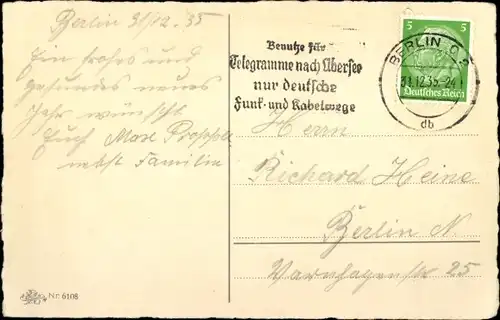 Berlin 31/12.35
Ein frohes und
gesundes neues
Jahr wünscht
Euch Max
nebst Familie
Nr. 6108
Benutze für
Telegramme nach Übersee
nur deutsche
Funk- und Kabelwege
BERLIN C 2
31.12.35.-24
db
5 5
Deutsches Reich
Herrn
Richard Heine
Berlin N.
Varnhagenstr 25